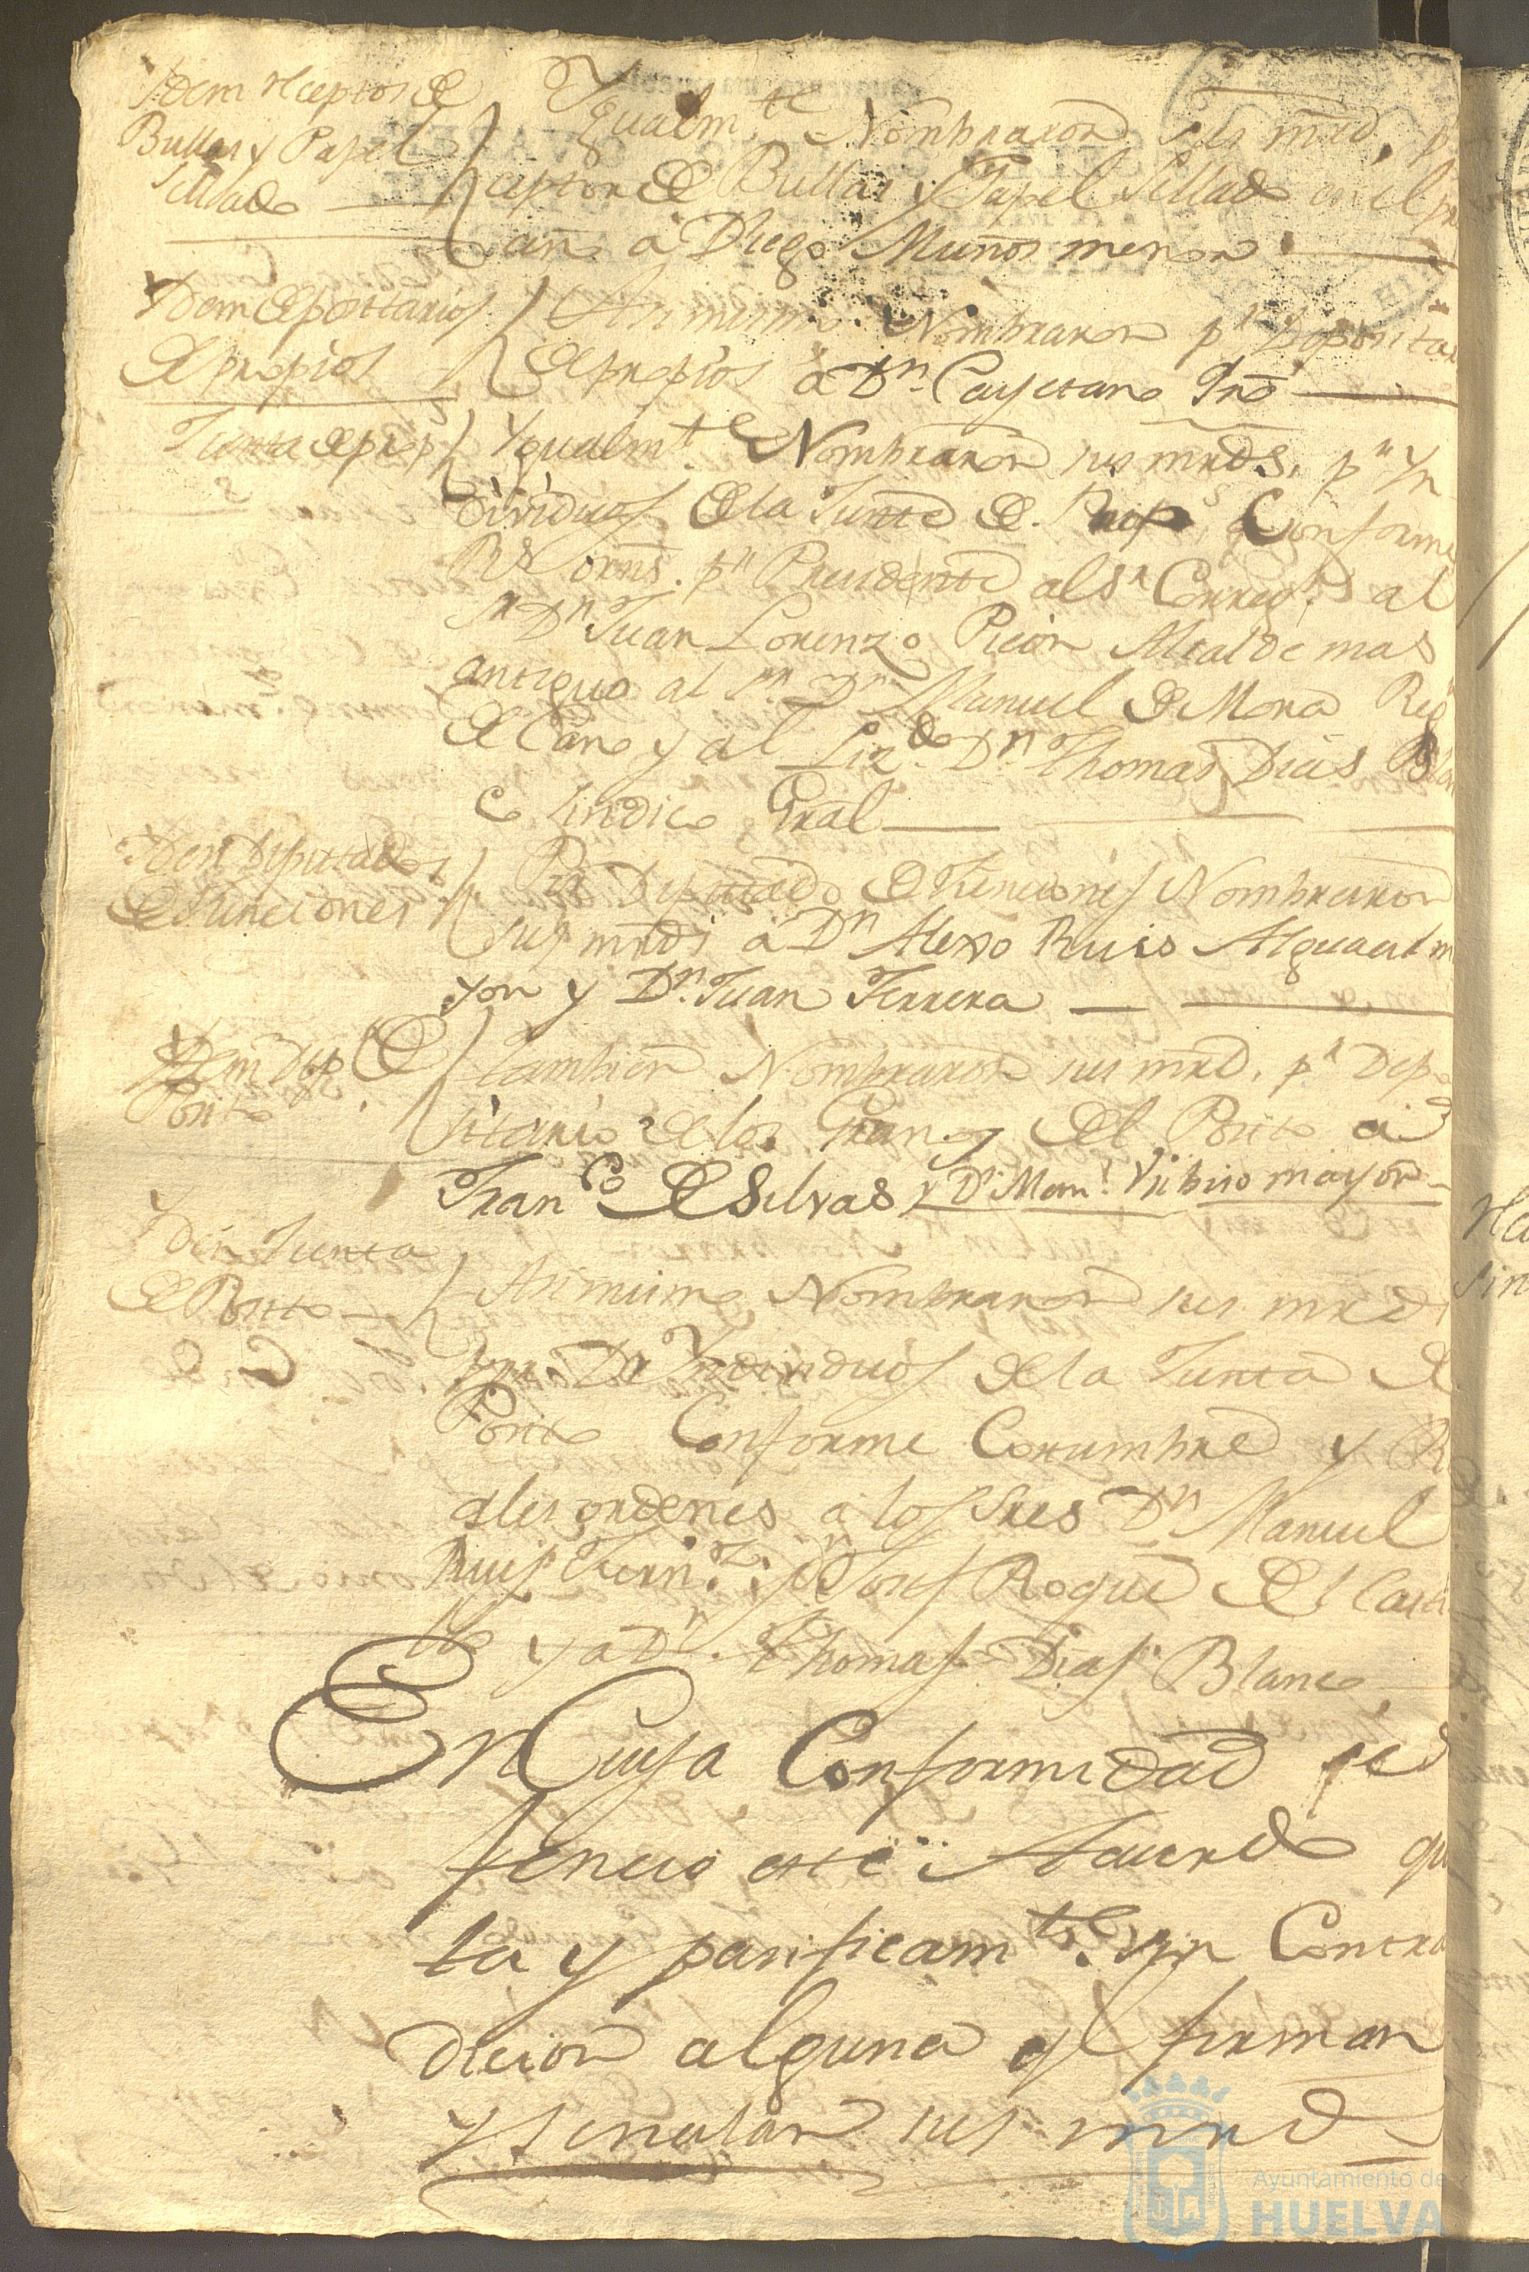 Idem receptor de
Bullas y Papel
Sellado
Ygualm.te Nombraron sus mrd, p.r
ceptor de Bullas y Papel Sellado en el pre
año à Diego Muños menor
Idem depositarios
de propios
Asimismo Nombraron p.r Deposita
de propios à Dn. Cayetano
Junta de prop
Ygualm.te Nombraron sus mrds, p.r Yn
dividuos de la Junta de Prop.s Conforme
Rs orns. p.r Presidente al Sr Correg.r al
Sr Dn Juan Lorenzo Picon Alcalde mas
antiguo al Sr Dn Manuel de Mora Reg
decano y al Lizdo. Dn. Thomas Dias Blan
co Sindico Gral
Idem Diputados
de Funciones
Por Diputado de Funciones Nombraron
sus mrds à Dn Alexo Ruis Alguacil m
yor y Dn. Juan Ferrera
Idem Dep. de
Posito
Tambien Nombraron sus mrd. p.r Depo
sitario de los Granos del Posito a
Franco de Silvas y Dn Man.l mayor
Yden Junta
de Posito
Asimismo Nombraron sus mrds
por Yndividuos de la Junta de
Posito Conforme Costumbre y Re
ales ordenes a los Sres Dn Manuel
Ruis Fern.z y Dn Josef Roque del Casti
llo y a Dn. Thomas Dias Blanco
En Cuya Conformidad se
fenecio este Acuerdo qu
ta y pasificam.te sin Contra
dicion alguna y firman
y señalan sus mrd
Ayuntamiento de
HUELVA